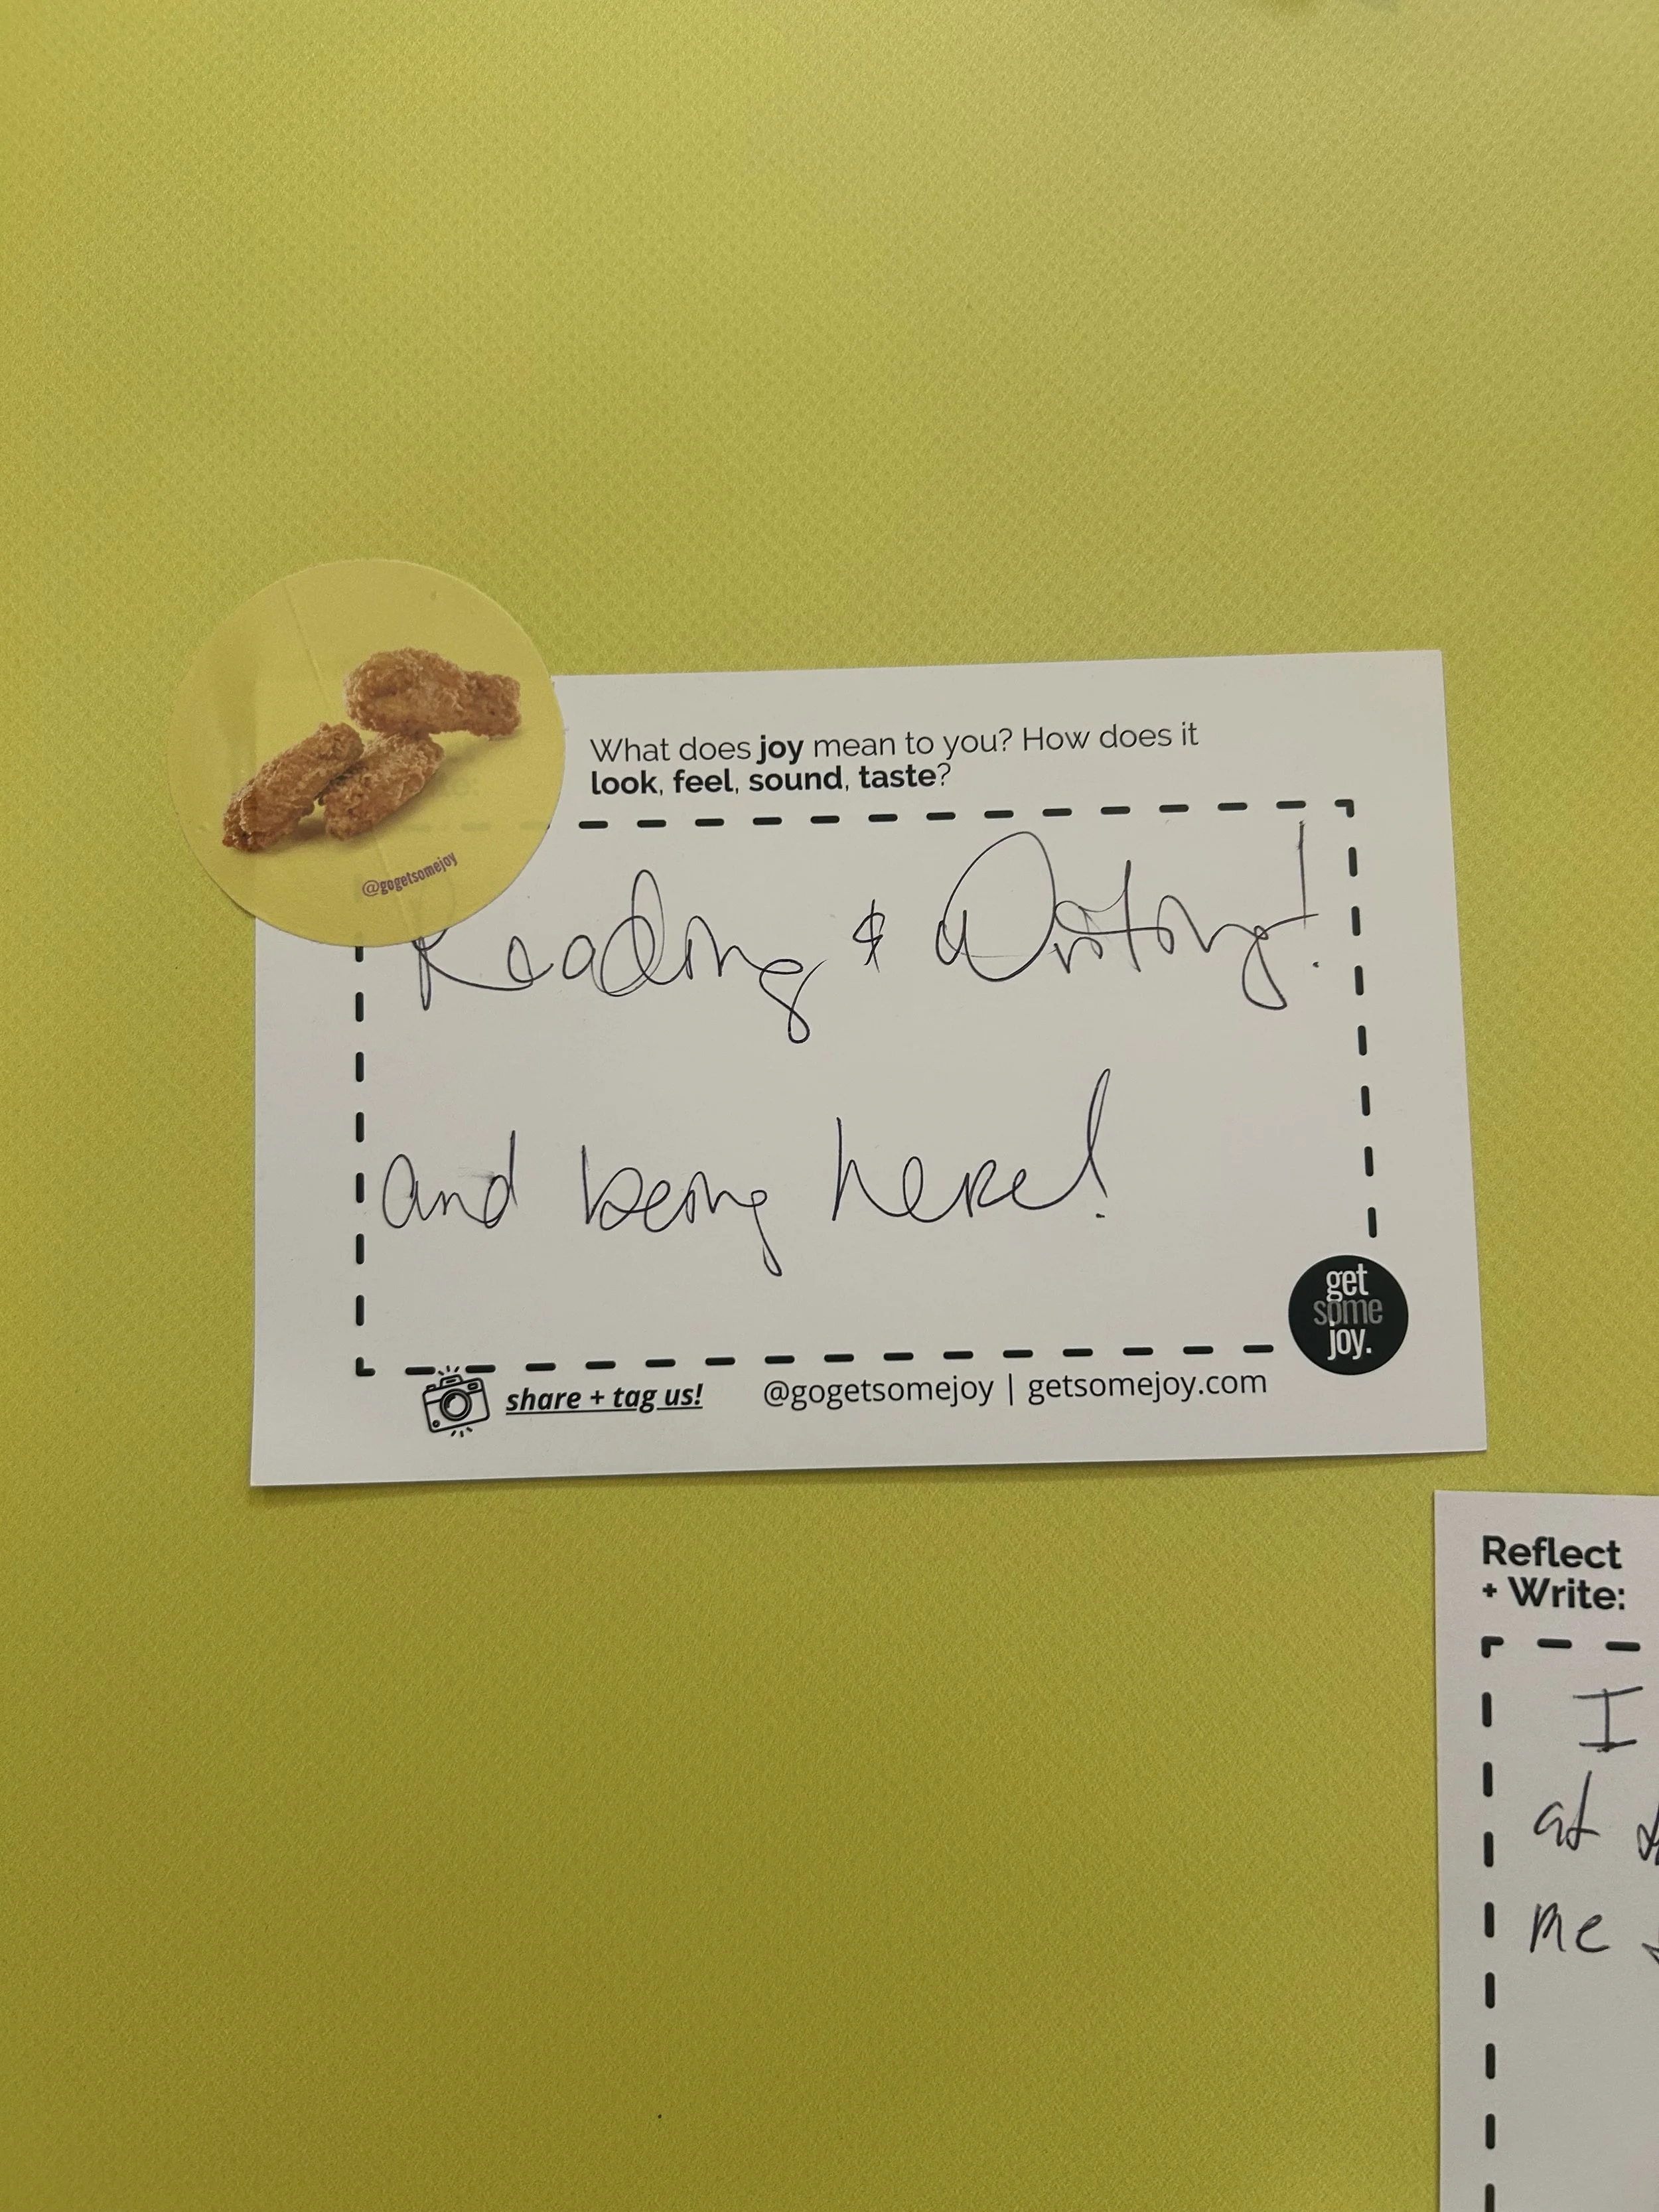 What does joy mean to you? How does it
look, feel, sound, taste?
@gogetsomejoy
Reading & Writing!
and being here!
get
some
joy.
share + tag us!
@gogetsomejoy | getsomejoy.com
Reflect
+ Write:
I
at
me